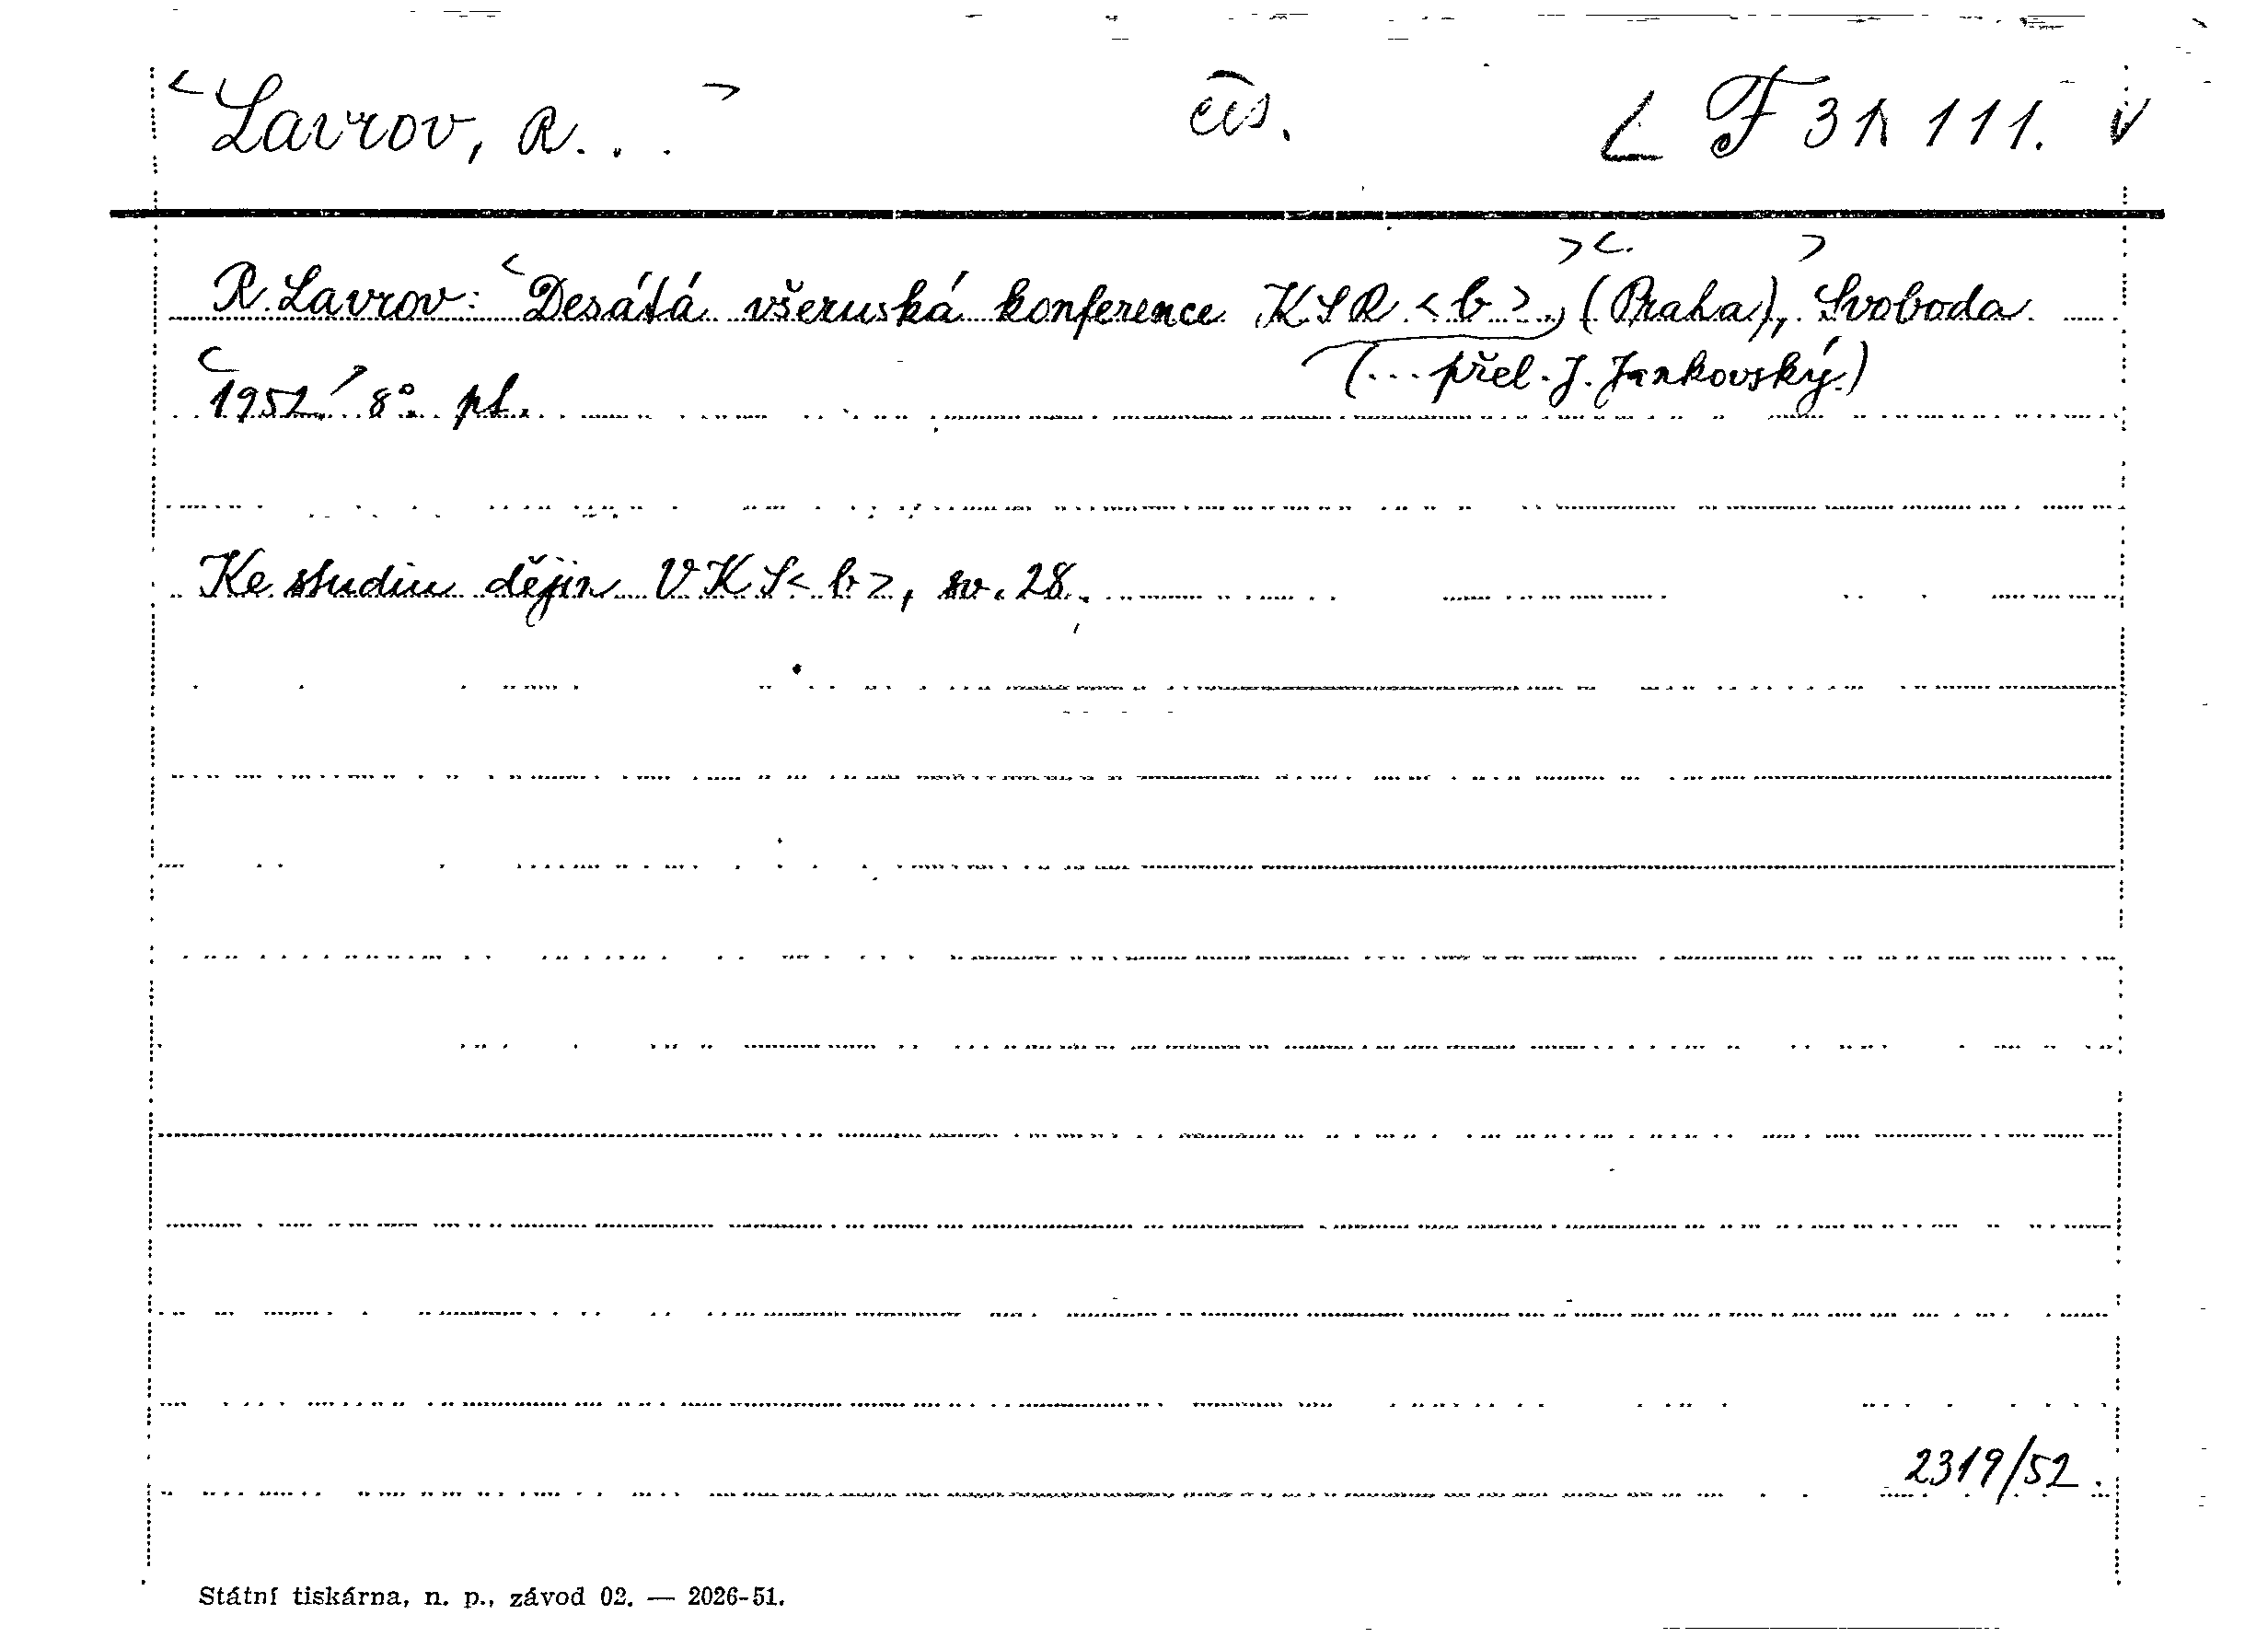 Lavrov, R... čes. F 31 111.
R. Lavrov: Desátá všeruská konference KSR <b>, (Praha), Svoboda
(... přel. J. Jankovský.)
1952, 8°. pl.
Ke studiu dějin VKS <b>, sv. 28.
2319/52.
Státní tiskárna, n. p., závod 02. — 2026-51.